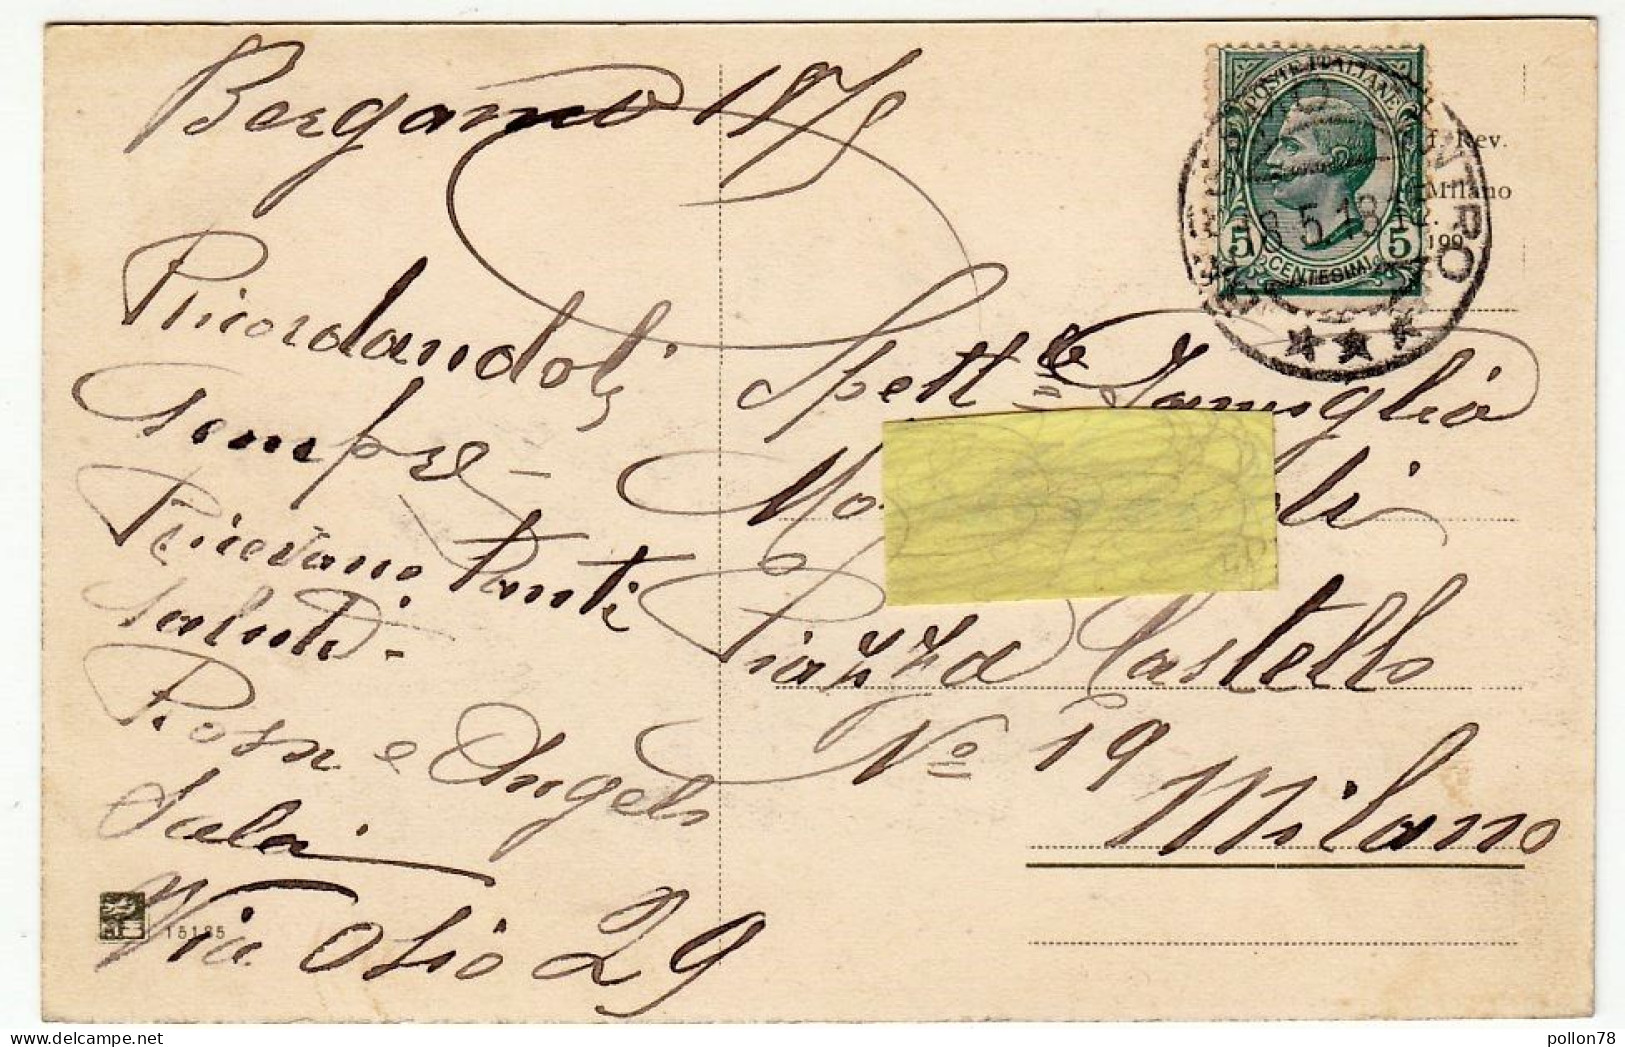 Bergamo 18/5
Ricordandoli
Sempre -
Ricevano Tanti
Saluti -
Rosa e Angelo
Sala
Via Osio 29
15185
POSTE ITALIANE
5 5
CENTESIMI
18 5 18
Rev.
Milano
Spett.le Famiglia
Piazza Castello
No 19
Milano
pollon78